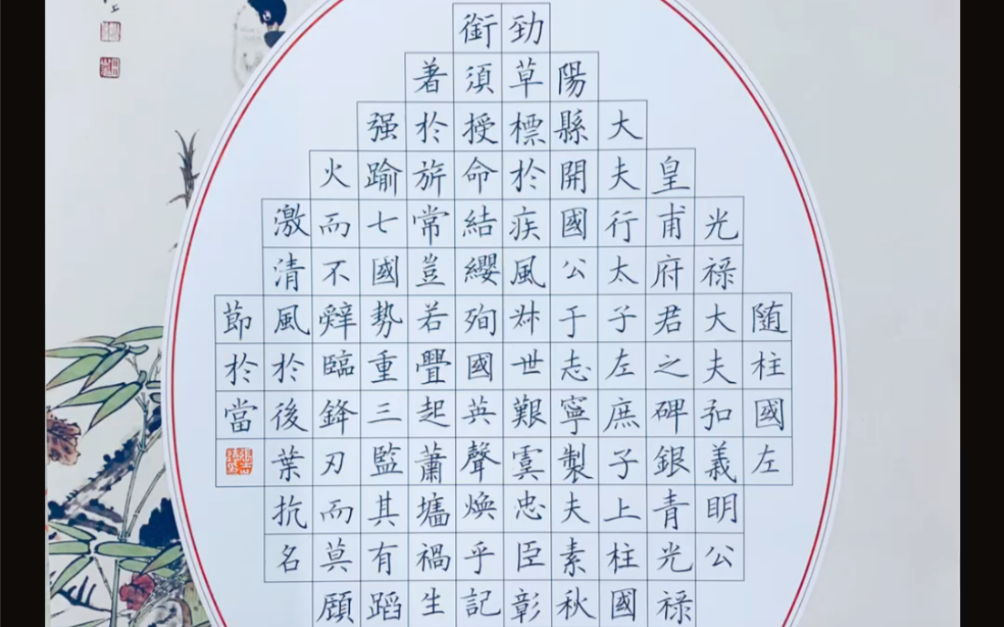 随柱國左
光禄大夫弘義明公
皇甫府君之碑銀青光禄
大夫行太子左庶子上柱國
陽縣開國公于志寧製夫素秋
勁草標於疾風叔世艱虞忠臣彰
銜須授命結纓殉國英聲焕乎記
著於旂常豈若疊起蕭墻禍生
强踰七國勢重三監其有蹈
火而不辭臨鋒刃而莫顧
激清風於後葉抗名
節於當